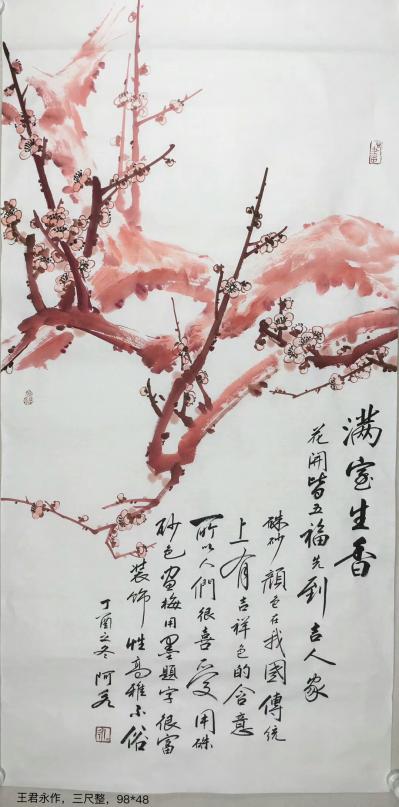 满室生香
花开皆五福先到吉人家
硃砂颜色在我國傳统
上有吉祥色的含意
所以人們很喜爱用硃
砂色畄梅用墨題字很富
装饰性高雅不俗
丁酉之冬阿永
王君永作，三尺整，98*48